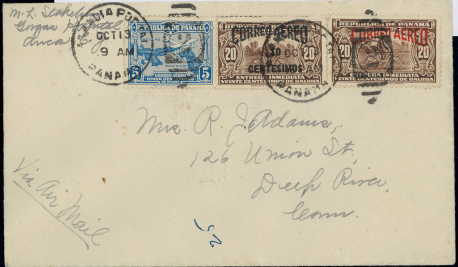 M. L. Stakel
Gorgas
Ancon
OCT 13
9 AM
PANAMA
REPUBLICA DE PANAMA
5 5
REPUBLICA DE PANAMA
CORREO AEREO
20 20
CENTESIMOS
ENTREGA INMEDIATA
VEINTE CENTESIMOS DE BALBOA
REPUBLICA DE PANAMA
CORREO AEREO
20 20
ENTREGA INMEDIATA
VEINTE CENTESIMOS DE BALBOA
PANAMA
Mrs. R. J. Adams,
126 Union St,
Deep River,
Conn.
Via Air Mail